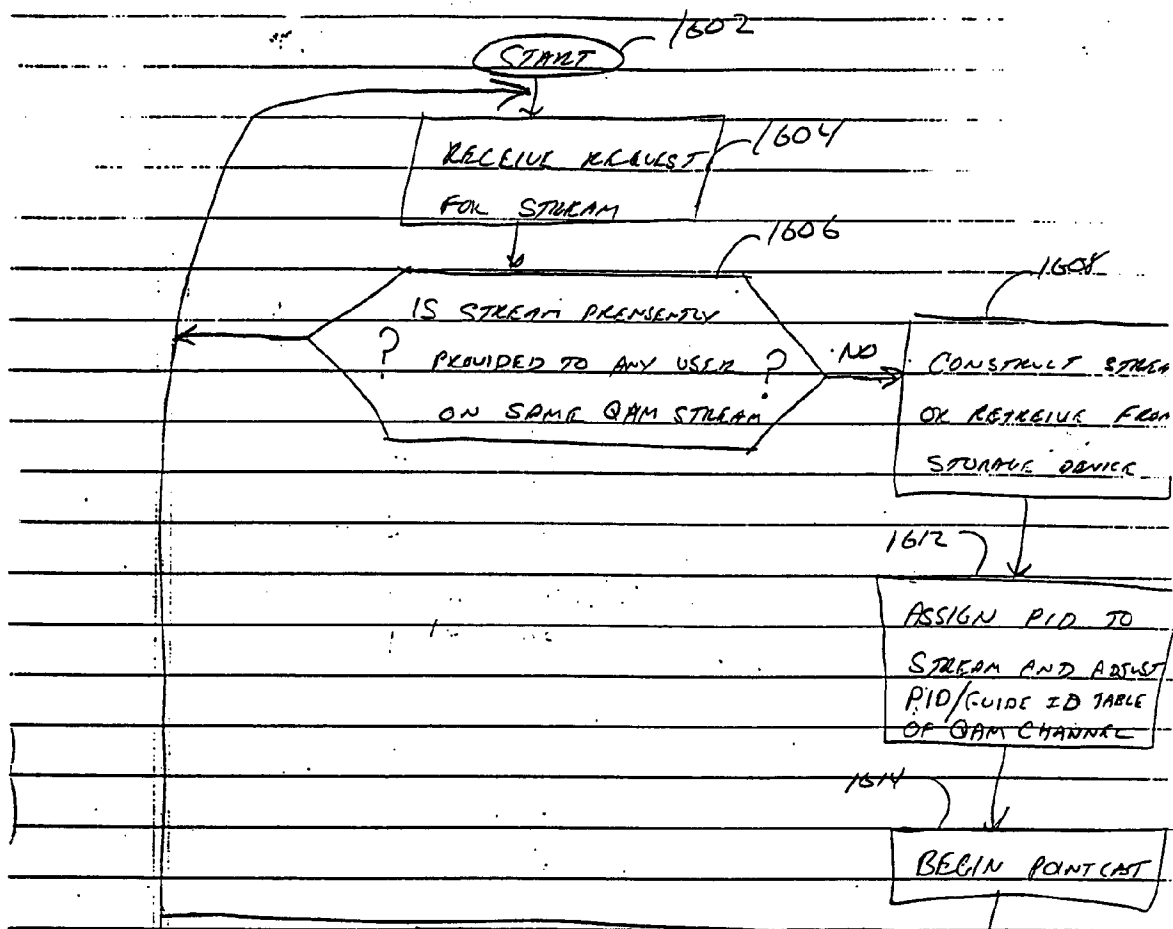 1602
START
1604
RECEIVE REQUEST
FOR STREAM
1606
1608
IS STREAM PRENSENTLY
? PROVIDED TO ANY USER ?
ON SAME QAM STREAM
NO
CONSTRUCT STREA
OR RETREIVE FROM
STORAGE DEVICE
1612
ASSIGN PID TO
STREAM AND ADJUST
PID/GUIDE ID TABLE
OF QAM CHANNEL
1614
BEGIN POINTCAST